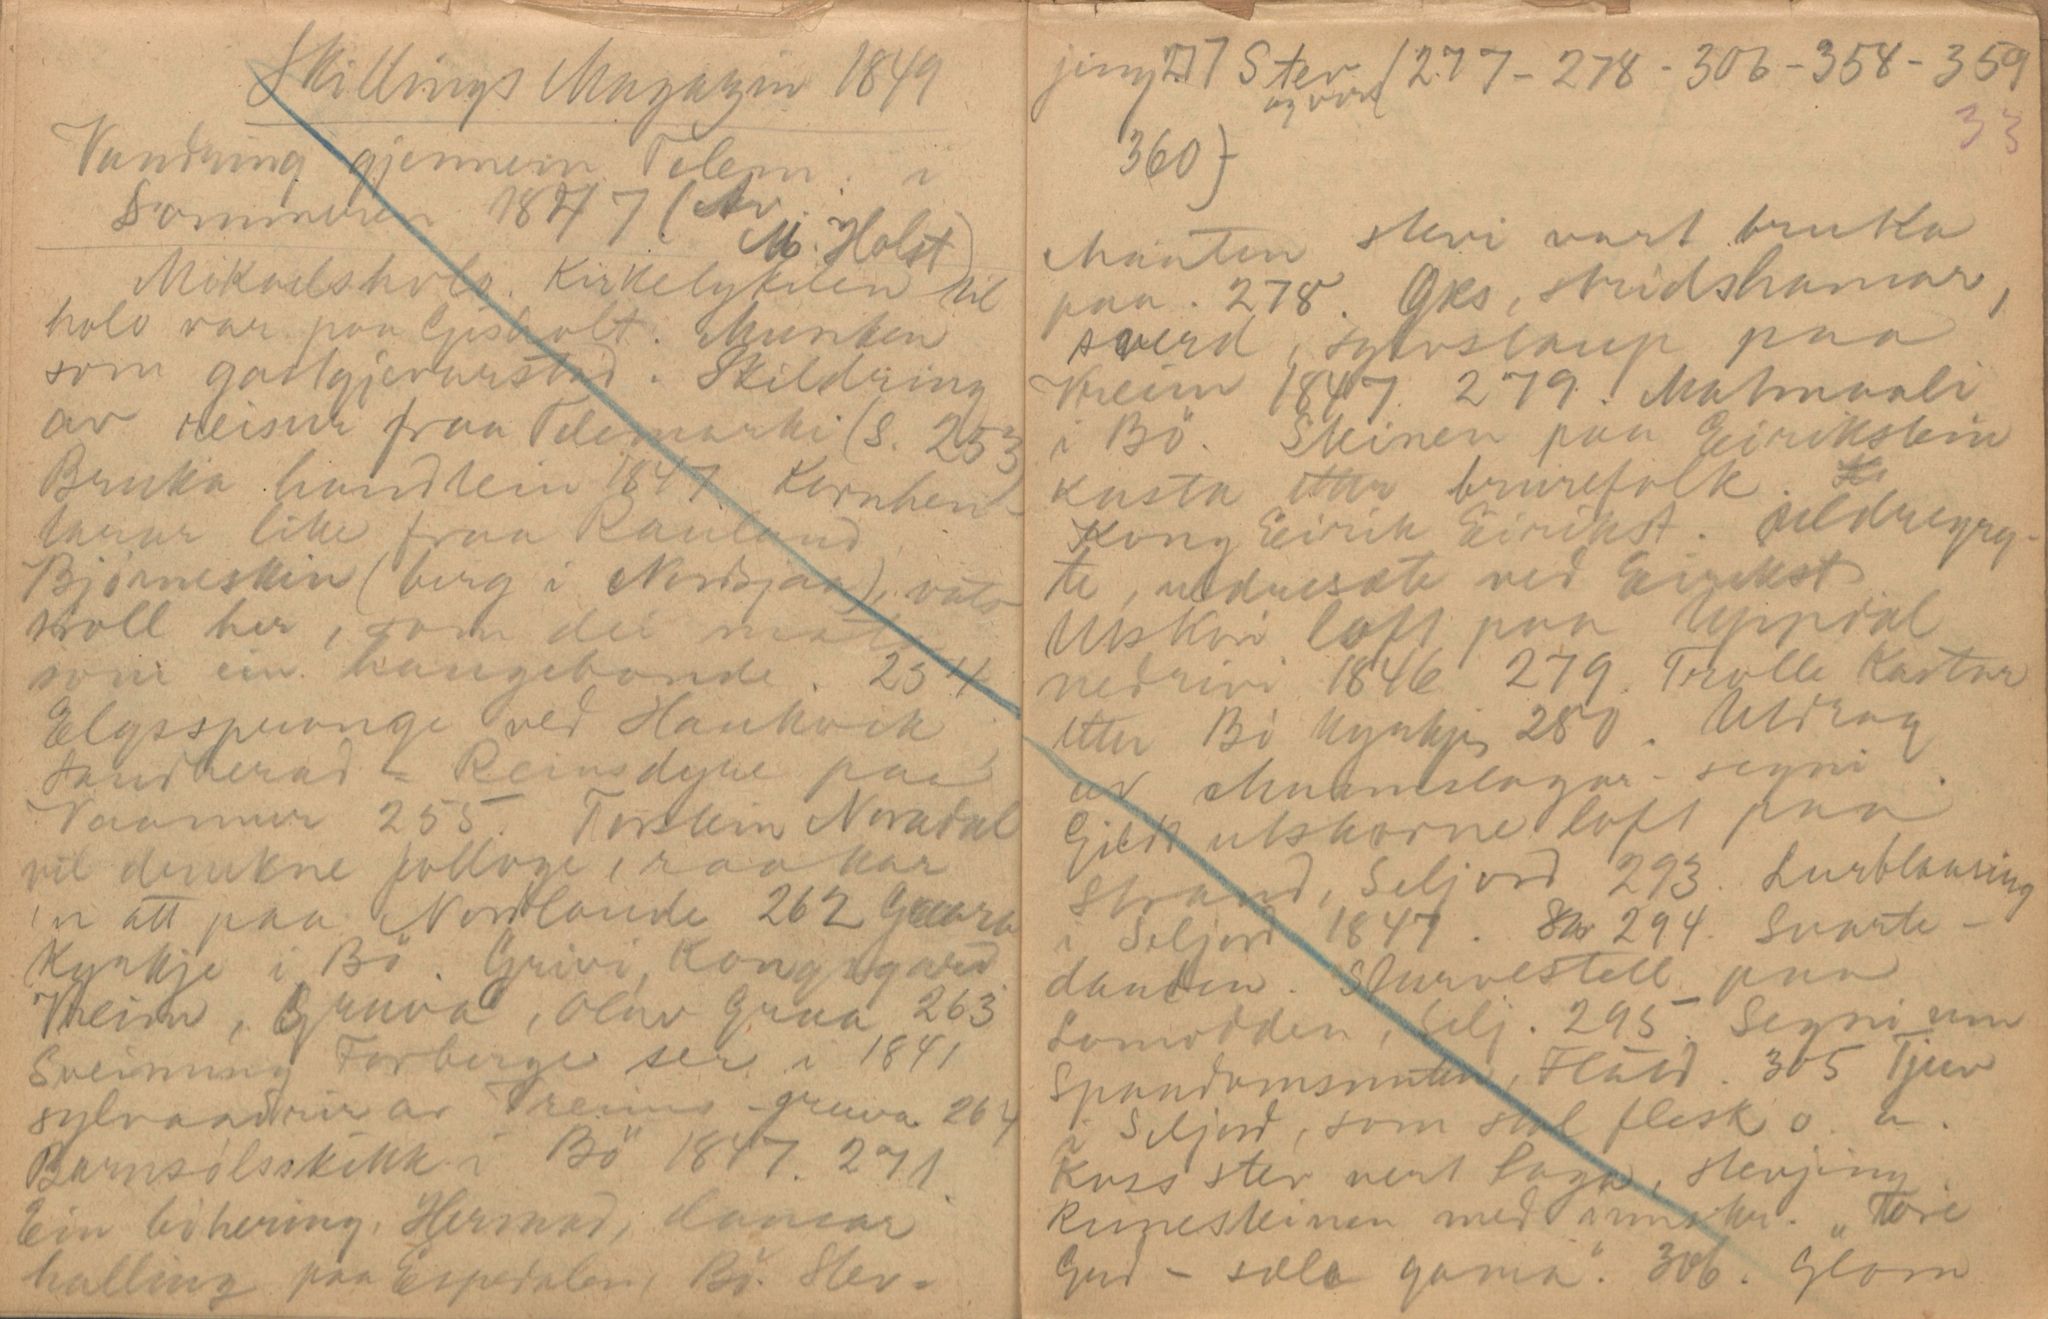 Skillings Magazin 1849
Vandring gjennem Telem. i
Sommeren 1847 (Av
M. Holst)
Mikaelsholo. Kirkelykelen til
holo var paa Gisholt. Munken
som godtgjerarstad. Skildring
av reisur fraa Telemarki (S. 253
Bruka handtein 1847 Kornhen-
tarar like fraa Rauland
Bjørneskin (berg i Nordsjaa), vats
troll her, som dei
som ein haugebonde. 254
Elgsspronge ved Haukvik
Sandherad = Reinsdyre paa
Vaamur 255. Torstein Noradal
vil drukne folloge, raakar
'n att paa Nordlande 262 Gaara
Kyrkje i Bö. Grivi, Kongsgard
Vreim, Gruva, Olav Graa 263
Sveinung Forberge ser i 1841
sylvaadrir av Vreims-gruva 264
Barnsölsskikk i Bö 1847. 271.
Ein bihering, Hermod, dansar
halling paa Espedalen, Bö. Stev-
jing 277 Stev (277 - 278 - 306 - 358 - 359
og viser
33
360)
Maaten stevi vart bruka
paa. 278. Öks, stridshamar,
sverd, sylvstaup paa
Vreim 1847. 279. Matmaali
i Bö. Steinen paa Eirikstein
kasta etter brurefolk.
Kong Eirik Eirikst. Sildregry-
te, ved Eirikst
Utskori loft paa Uppdal
nedrivi 1846 279. Trolle kastar
etter Bö kyrkje 280. Utdrag
av Mannslagar-segni.
Gildt utskorne loft paa
Strand, Seljord 293. Lurblaasing
i Seljord 1847. 294. Svarte-
dauden. Sturvestell paa
Lomodden, Selj. 295. Segni um
Spaadomsnuten, Flatd. 305 Tjuv
i Seljord, som stal flesk o. a.
Koss stev vert laga, stevjing.
Runesteinen med innskr. "Töre
Gud – sæla gama". 306. Glom